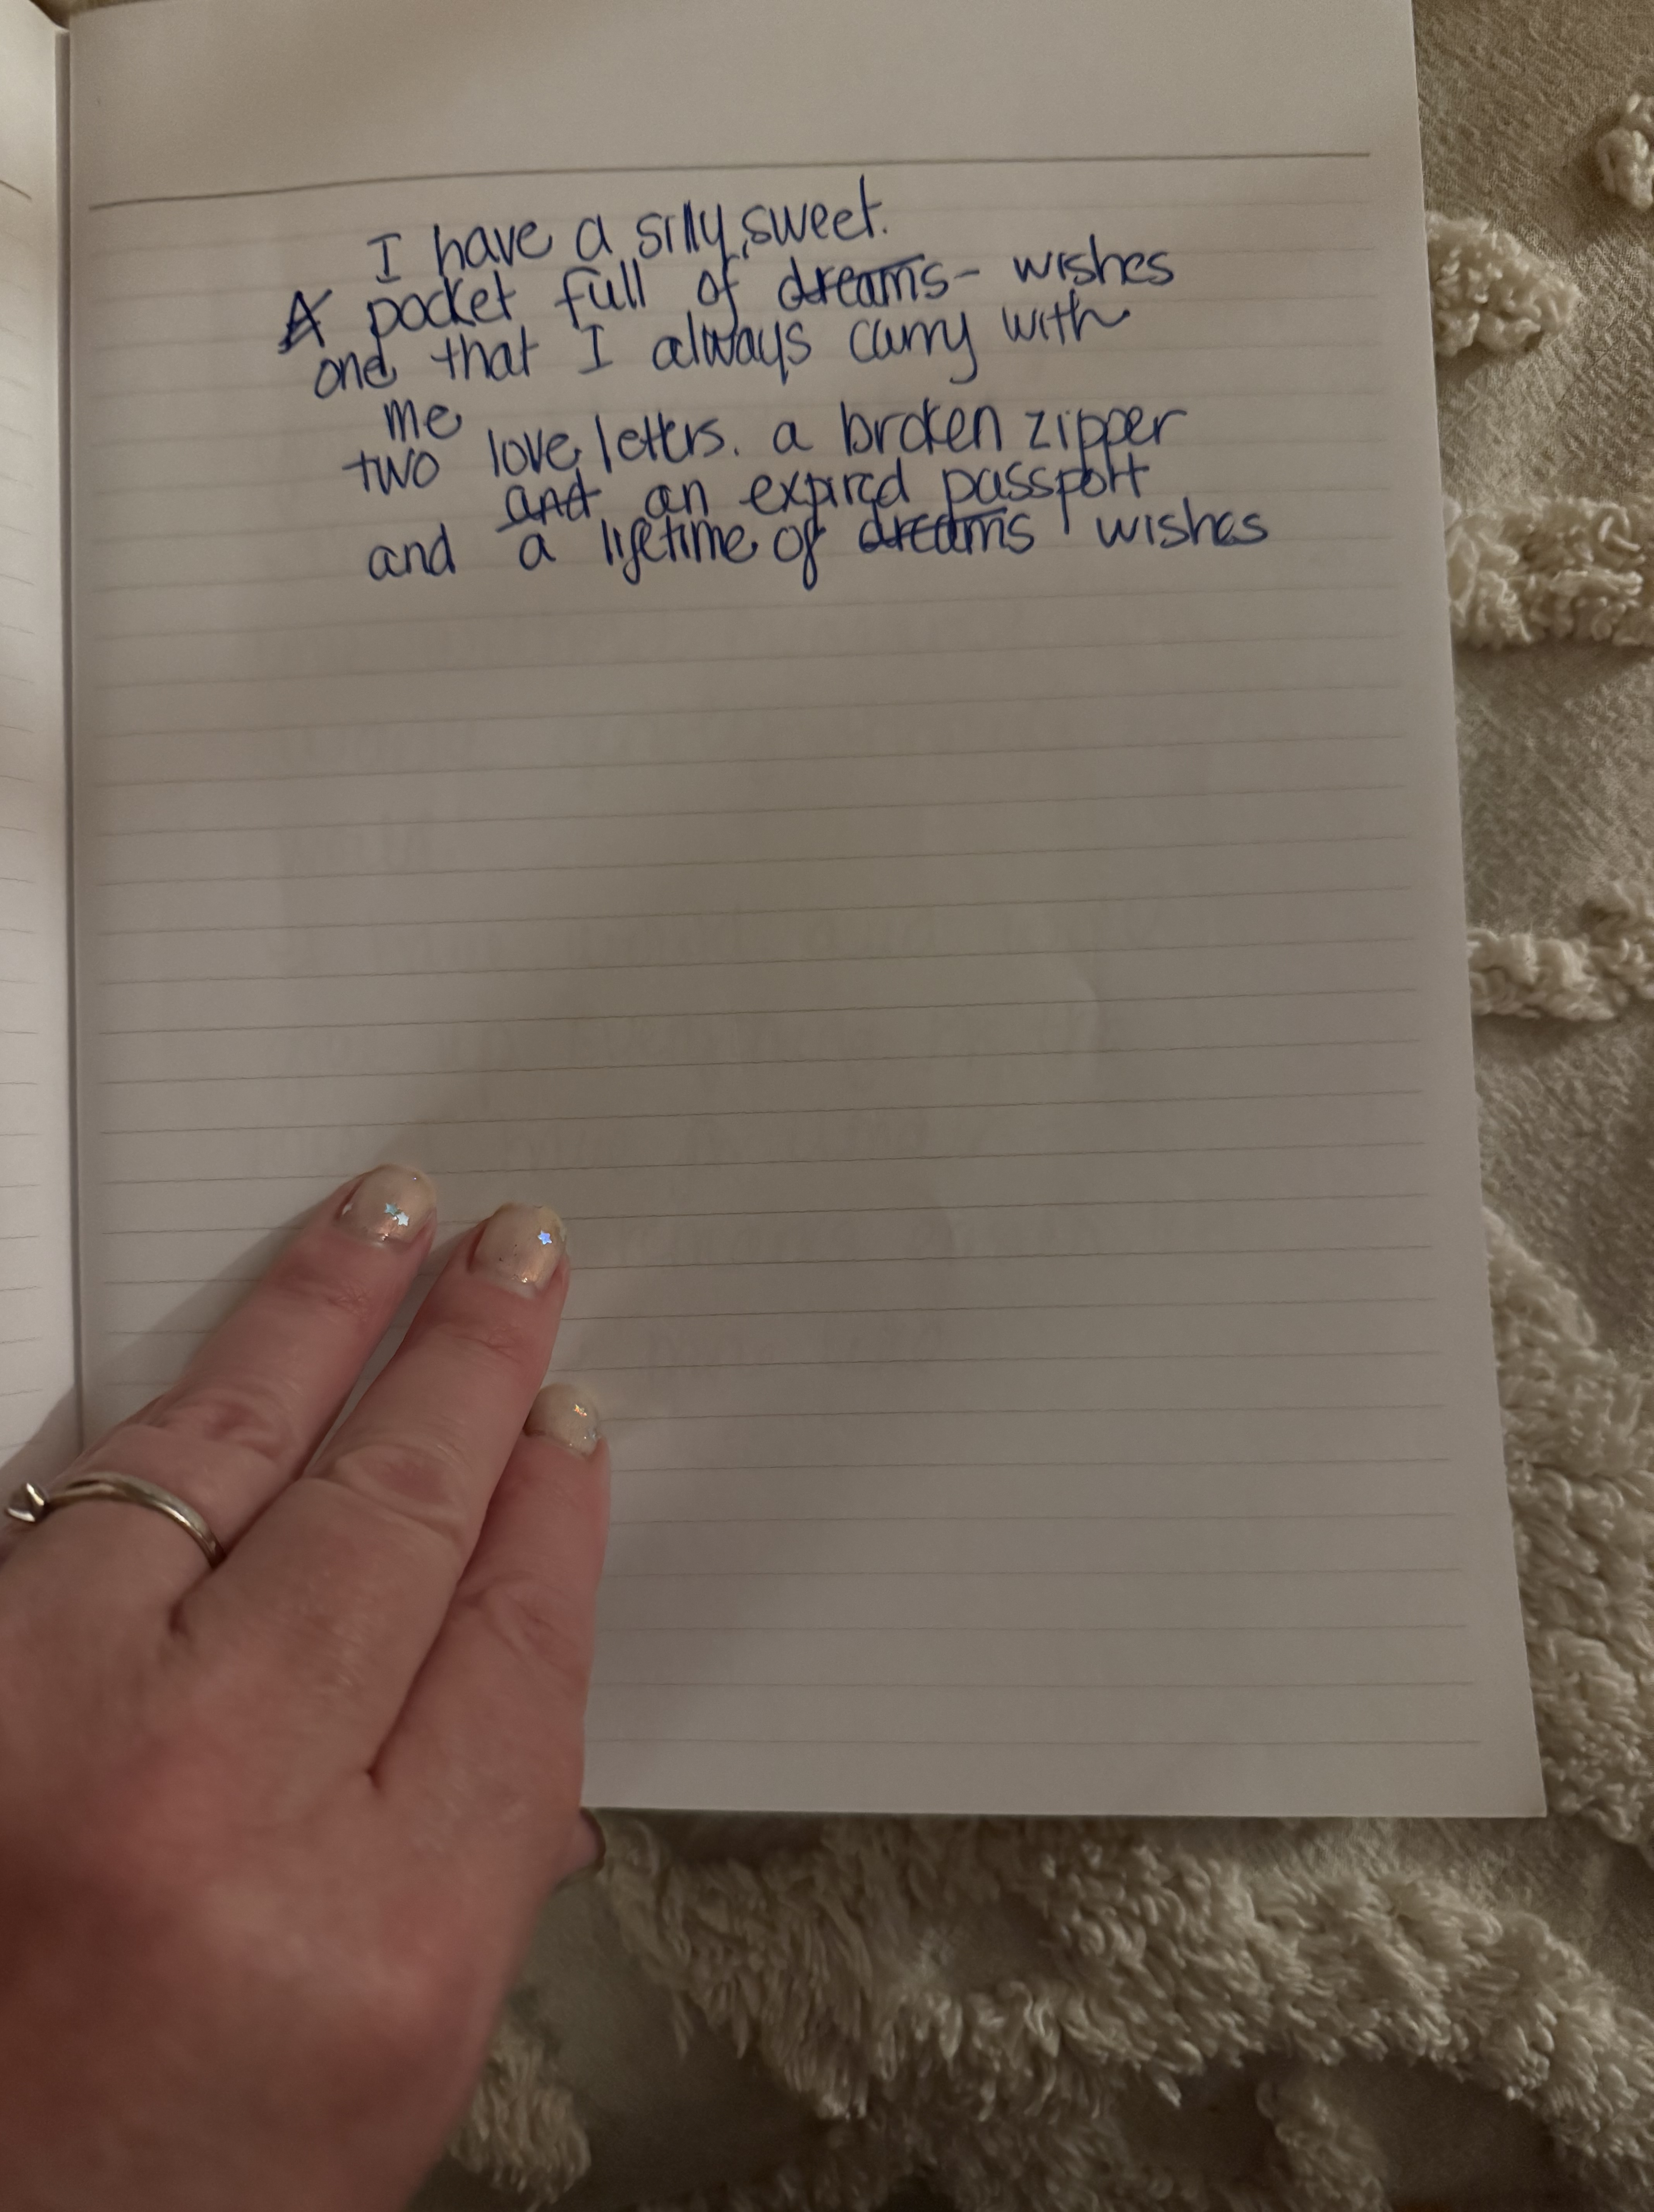 I have a silly, sweet.
A pocket full of dreams- wishes
one that I always carry with
me
two love letters. a broken zipper
and an expired passport
and a lifetime of dreams wishes